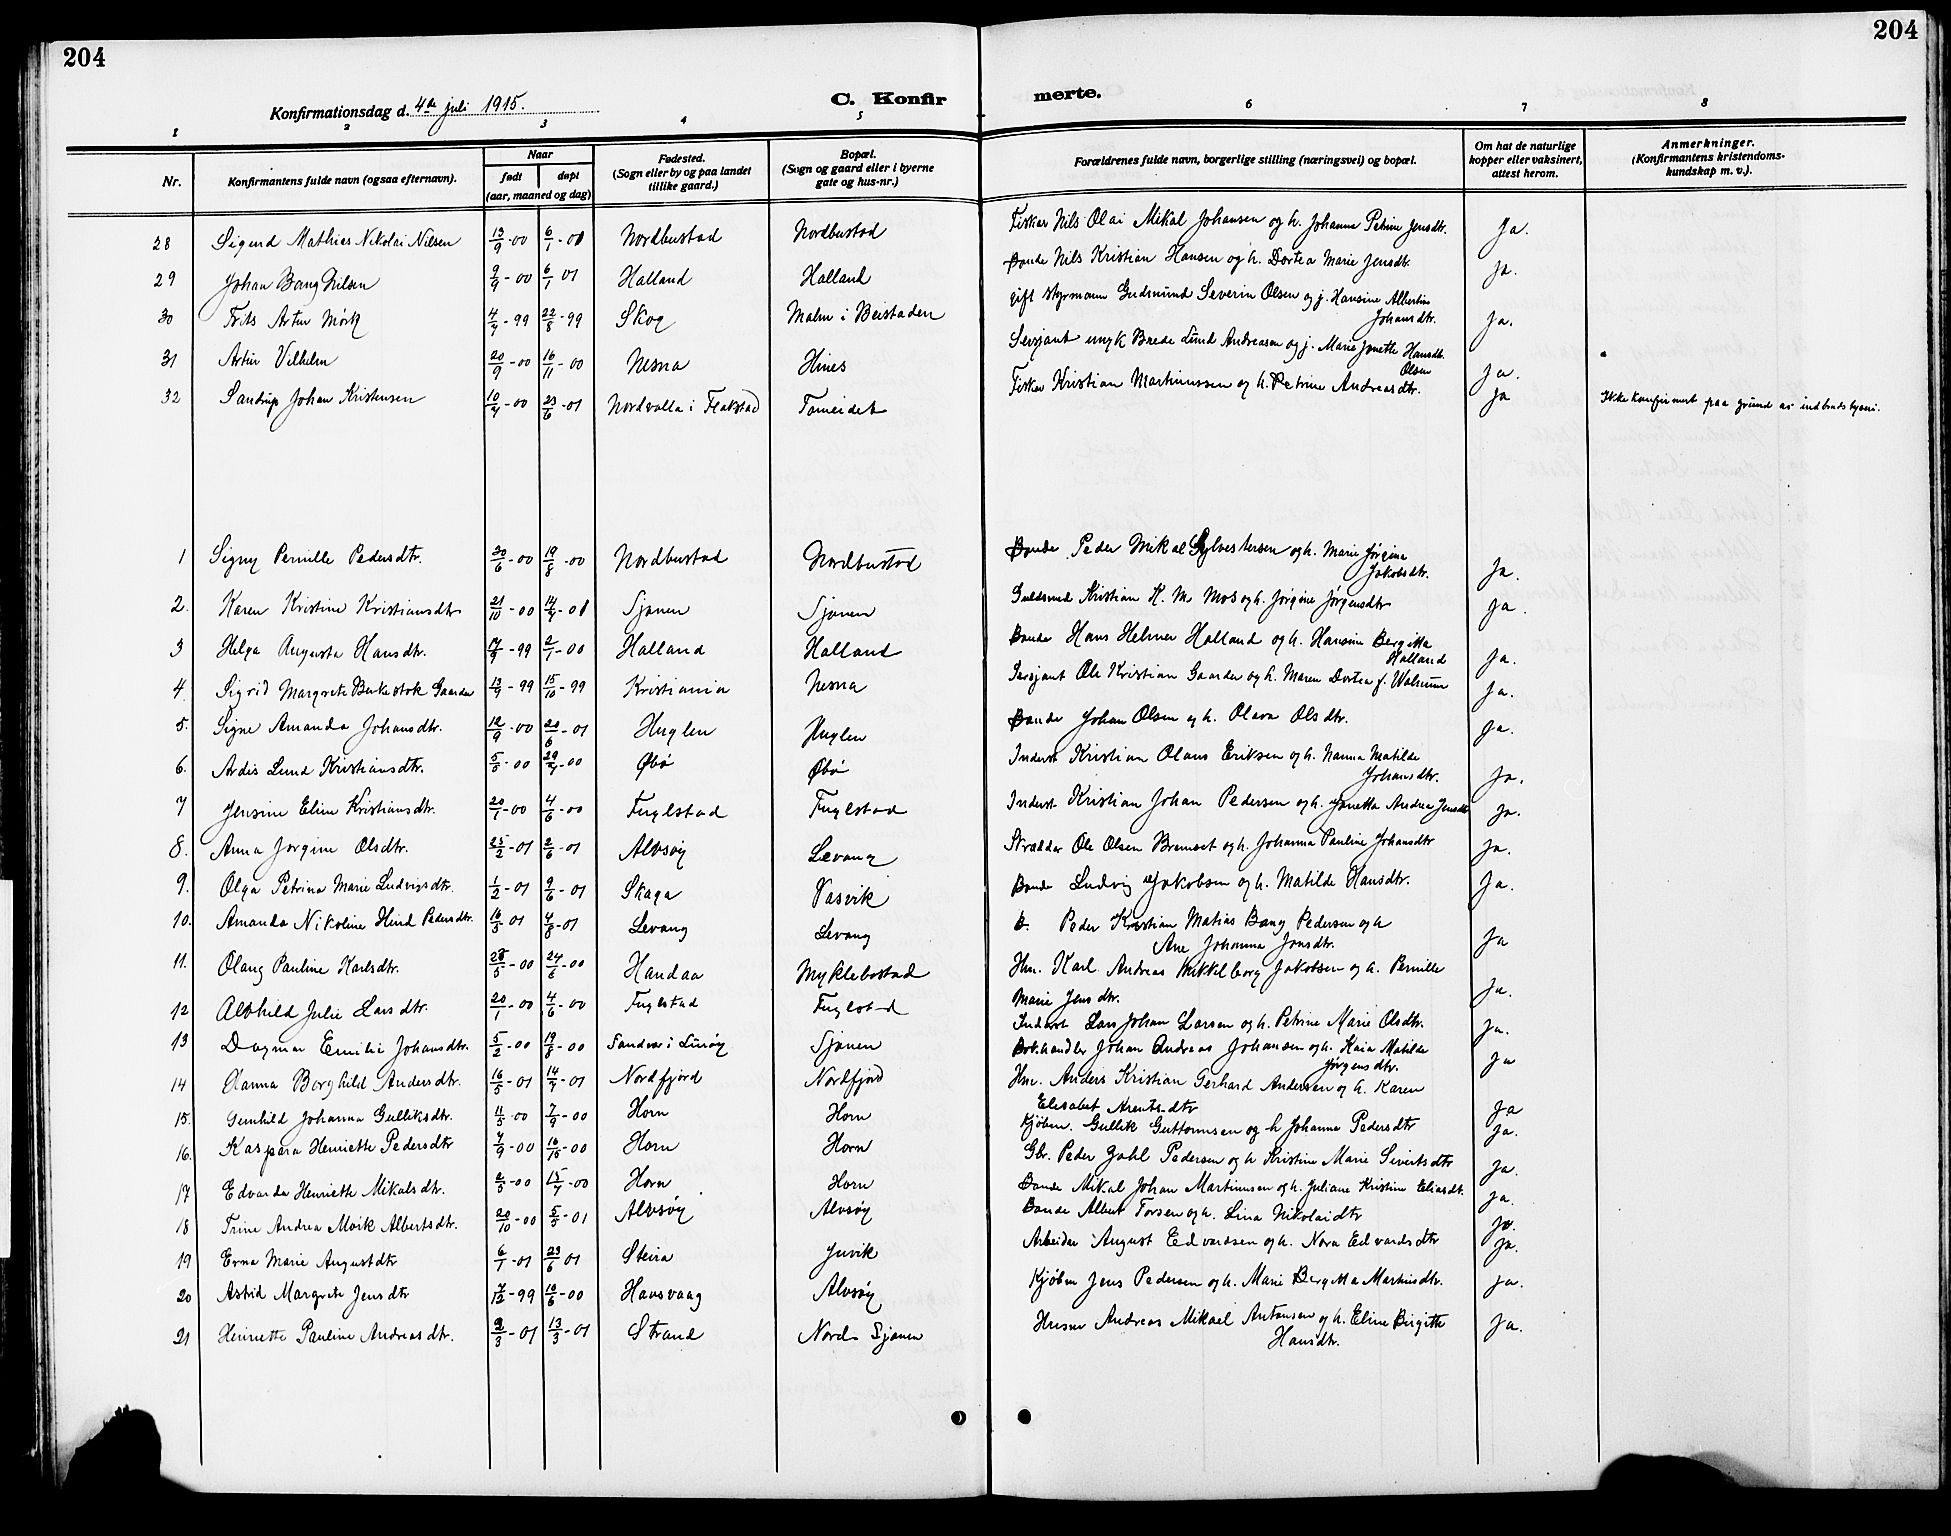 204
204
Konfirmationsdag d. 4de juli 1915.
C. Konfir
merte.
1 2 3 4 5 6 7 8
Nr.
Konfirmantens fulde navn (ogsaa efternavn).
Naar
født døpt
(aar, maaned og dag)
Fødested.
(Sogn eller by og paa landet
tillike gaard.)
Bopæl.
(Sogn og gaard eller i byerne
gate og hus-nr.)
Forældrenes fulde navn, borgerlige stilling (næringsvei) og bopæl.
Om hat de naturlige
kopper eller vaksinert,
attest herom.
Anmerkninger.
(Konfirmantens kristendoms-
kundskap m. v.).
28 Sigurd Mathias Nikolai Nilsen 13/9-00 6/1-01 Nordbustad Nordbustad Fisker Nils Olai Mikal Johansen og h. Johanna Petrine Jensdtr. Ja.
29 Johan Bang Nilsen 9/9-00 6/1 01 Halland Halland Bonde Nils Kristian Hansen og h. Dortea Marie Jensdtr. Ja.
30 Frits Artur Mørk 4/7-99 22/8-99 Skog Malm i Beistaden gift styrmann Gudmund Severin Olsen og j. Hansine Albertine
Johansdtr. Ja.
31 Artur Vilhelm 20/9-00 16/11-00 Nesna Hines Sersjant ungk Brede Lund Andreasen og j. Marie Jonette Hansdtr.
Olsen Ja.
32 Sandrup Johan Kristensen 10/4-00 23/6-01 Nordvalla i Flakstad Tomeidet Fisker Kristian Martinussen og h. Petrine Andreasdtr. Ja Ikke konfirmert paa grund av
1 Signy Pernille Pedersdtr. 30/6-00 19/8-00 Nordbustad Nordbustad Bonde Peder Mikal Sylvestersen og h. Marie Jørgine
Jakobsdtr. Ja.
2. Karen Kristine Kristiansdtr 21/10-00 14/4-01 Sjonen Sjonen Guldsmed Kristian K. M. Mos og h. Jørgine Jørgensdtr Ja.
3 Helga Augusta Hansdtr. 17/9-99 2/1-00 Halland Halland Bonde Hans Helmer Halland og h. Hansine Bergitta
Halland Ja.
4. Sigrid Margrete Birkestok Gaarder 13/9-99 15/10-99 Kristiania Nesna Sersjant Ole Kristian Gaarder og h. Maren Dortea f. Walnum Ja.
5. Signe Amanda Johansdtr. 12/9-00 20/6-01 Huglen Huglen Bonde Johan Olsen og h. Olava Olsdtr. Ja.
6. Ardis Lund Kristiansdtr. 5/5-00 29/7-00 Øbø Øbø Inderst Kristian Olaus Eriksen og h. Nanna Matilde
Johansdtr. Ja.
7 Jensine Eline Kristiansdtr. 20/1-00 4/6-00 Fuglstad Fuglstad Inderst Kristian Johan Pedersen og h. Jonetta Andrea Jensdtr Ja.
8. Anna Jorgine Olsdtr. 25/2-01 2/6-01 Alvsøy Levang Skrædder Ole Olsen Bremset og h. Johanna Pauline Johansdtr Ja.
9. Olga Petrina Marie Ludvigsdtr. 1/2-01 9/6-01 Skaga Vasvik Bonde Ludvig Jakobsen og h. Matilde Hansdtr. Ja.
10. Amanda Nikoline Hind Pedersdtr. 16/5 01 4/8-01 Levang Levang B. Peder Kristian Matias Bang Pedersen og h
Ane Johanna Jonsdtr. Ja
11. Olaug Pauline Karlsdtr. 28/5-00 24/6-00 Handaa Myklebostad Hm. Karl Andreas Mikkelborg Jakobsen og h. Pernille
Marie Jensdtr. Ja.
12 Alvhild Julie Larsdtr. 20/1-00 4/6-00 Fuglstad Fuglstad Inderst Lars Johan Larsen og h. Petrine Marie Olsdtr. Ja.
13 Dagmar Emilie Johansdtr. 5/2-00 19/8-00 Sandvær i Lurøy Sjonen Bokhandler Johan Andreas Johansen og h. Kaia Matilde
Jørgensdtr. Ja
14 Hanna Borghild Andersdtr. 16/5-01 14/7-01 Nordfjord Nordfjord Hm. Anders Kristian Gerhard Andersen og h. Karen
Elisabet Arentsdtr Ja
15. Gunhild Johanna Gulliksdtr. 11/5-00 7/9-00 Horn Horn Kjøbm. Gullik Guttormsen og h Johanna Pedersdtr Ja.
16. Kaspara Henriette Pedersdtr 4/9-00 16/10-00 Horn Horn Gbr. Peder Zahl Pedersen og h Kristine Marie Sivertsdtr Ja.
17 Edvarda Henriette Mikalsdtr. 2/5-00 15/7-00 Horn Horn Bonde Mikal Johan Martinusen og h. Juliane Kristine Eliasdtr. Ja.
18 Trine Andrea Moik Albertsdtr. 20/10-00 5/5-01 Alvsøy Alvsøy Bonde Albert Torsen og h. Lina Nikolaidtr Ja.
19 Erna Marie Augustdtr 6/1-01 23/6 01 Steira Juvik Arbeider August Edvardsen og h. Nora Edvardsdtr Ja.
20 Astrid Margrete Jensdtr 7/12-99 10/6-00 Havsvaag Alvsøy Kjøbm Jens Pedersen og h. Marie Bergitta Martinsdtr. Ja.
21 Henriette Pauline Andreasdtr. 2/3-01 13/3-01 Strand Nord Sjonen Husm Andreas Mikael Antonsen og h. Eline Birgitte
Hansdtr. Ja.